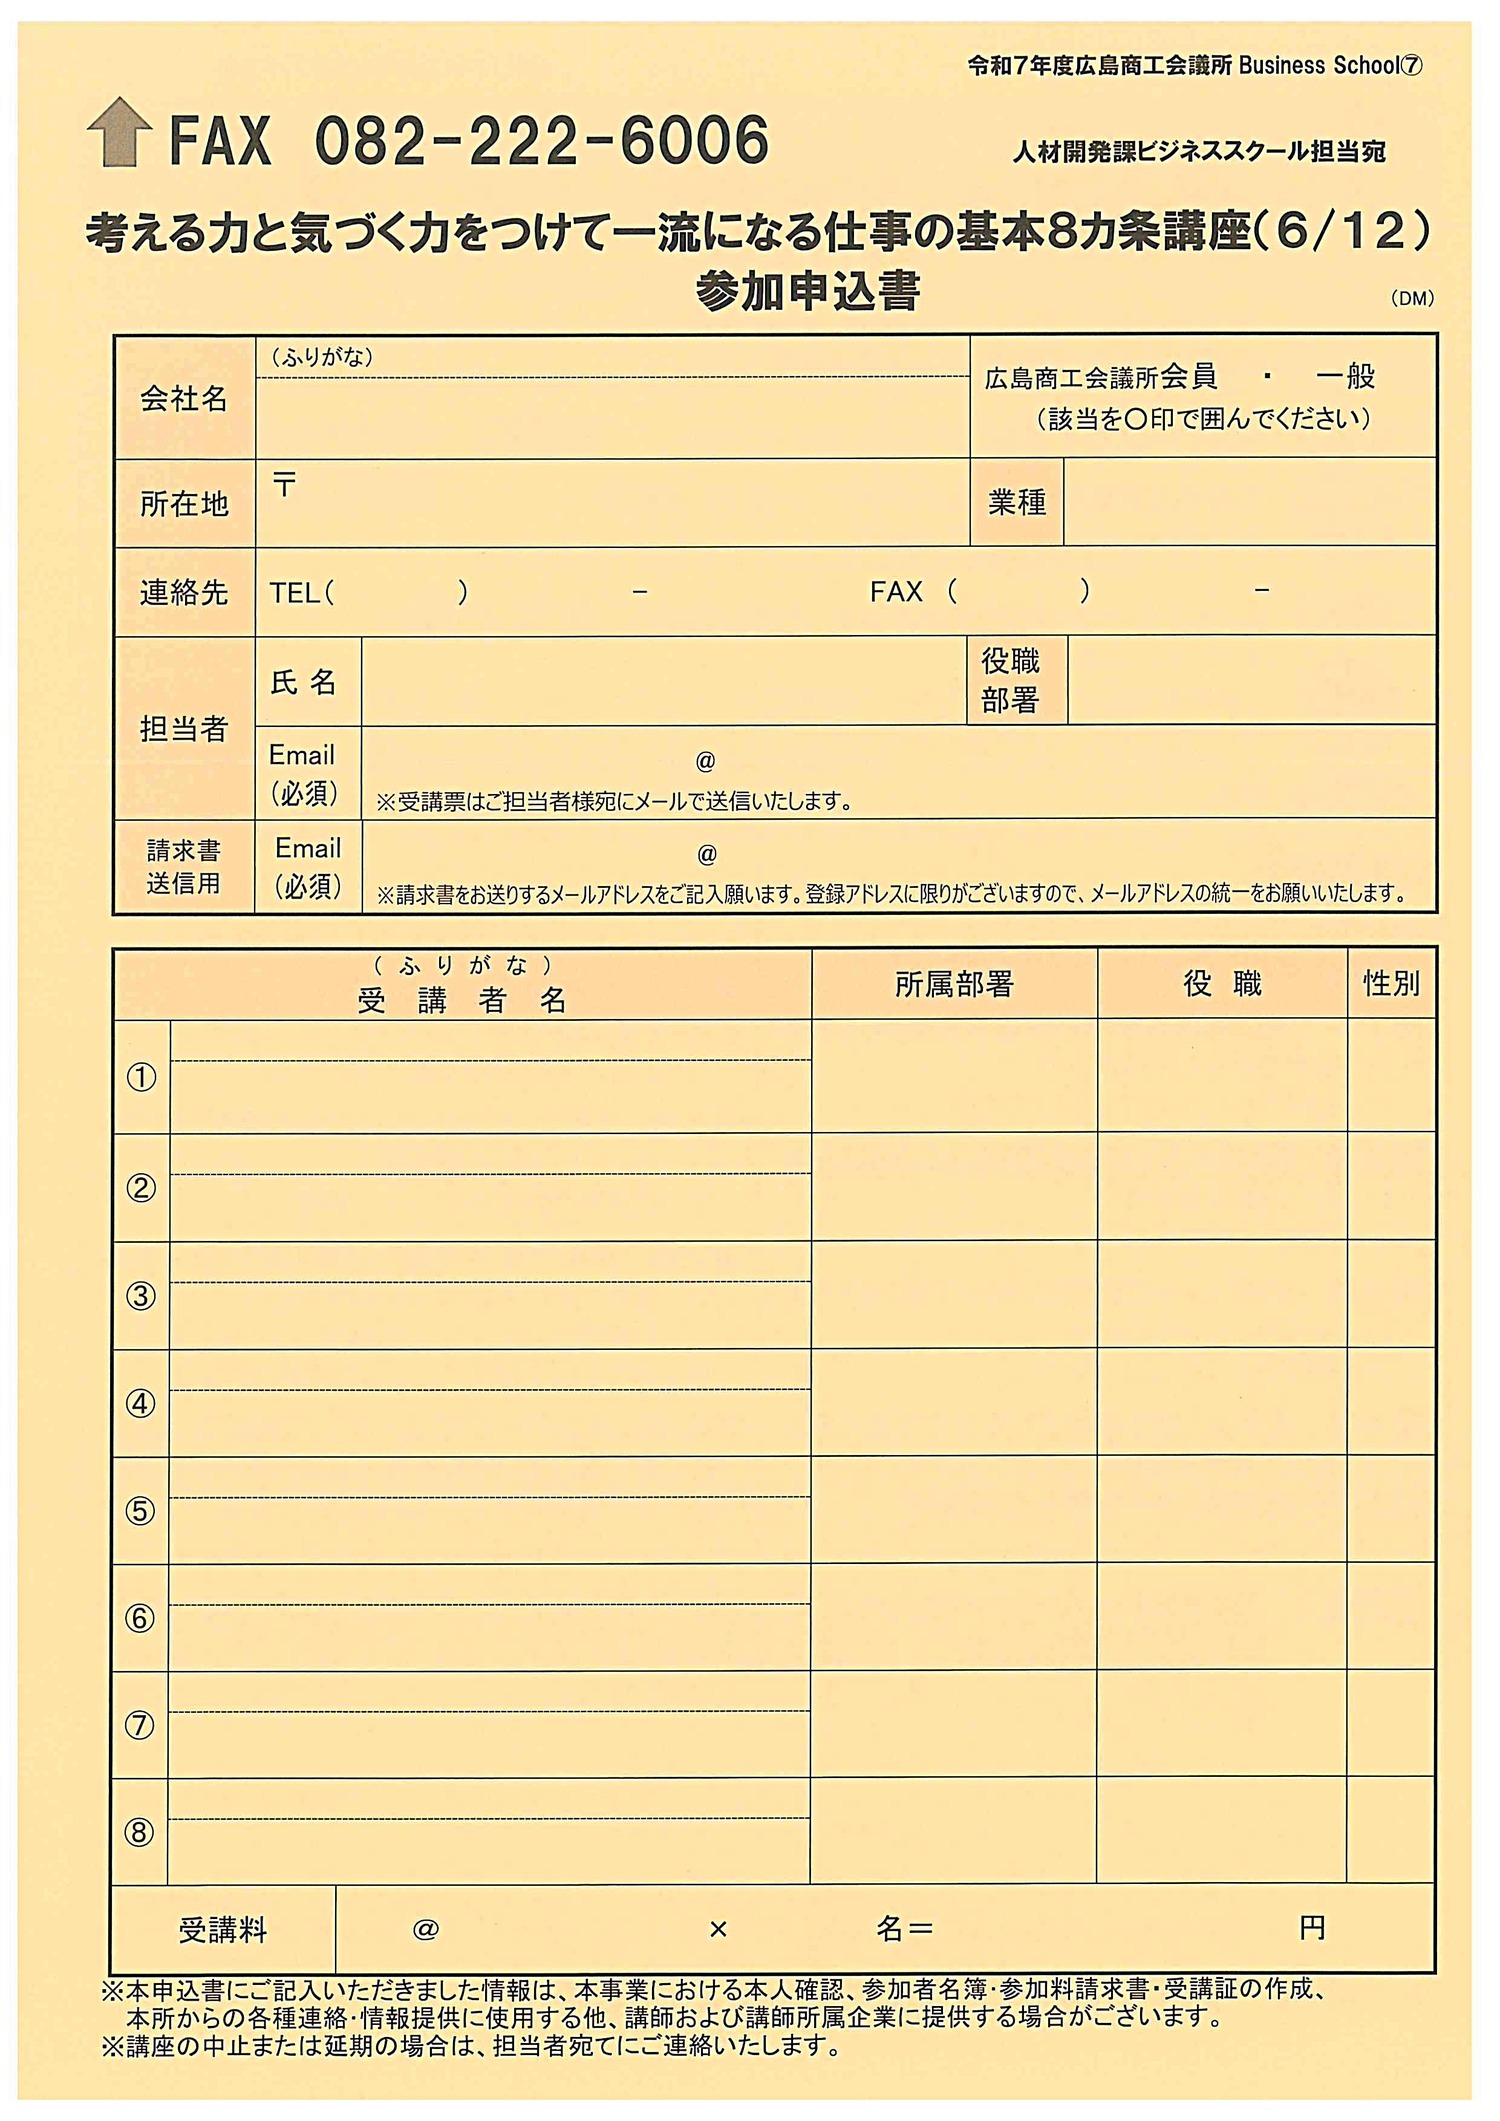 令和7年度広島商工会議所 Business School⑦
FAX 082-222-6006
人材開発課ビジネススクール担当宛
考える力と気づく力をつけて一流になる仕事の基本8カ条講座(6/12)
参加申込書
(DM)
会社名
(ふりがな)
広島商工会議所会員 ・ 一般
(該当を○印で囲んでください)
所在地
〒
業種
連絡先
TEL( ) － FAX ( ) －
担当者
氏名
役職
部署
Email
(必須)
@
※受講票はご担当者様宛にメールで送信いたします。
請求書
送信用
Email
(必須)
@
※請求書をお送りするメールアドレスをご記入願います。登録アドレスに限りがございますので、メールアドレスの統一をお願いいたします。
(ふりがな)
受講者名
所属部署
役職
性別
①
②
③
④
⑤
⑥
⑦
⑧
受講料
@ × 名＝ 円
※本申込書にご記入いただきました情報は、本事業における本人確認、参加者名簿・参加料請求書・受講証の作成、
本所からの各種連絡・情報提供に使用する他、講師および講師所属企業に提供する場合がございます。
※講座の中止または延期の場合は、担当者宛てにご連絡いたします。